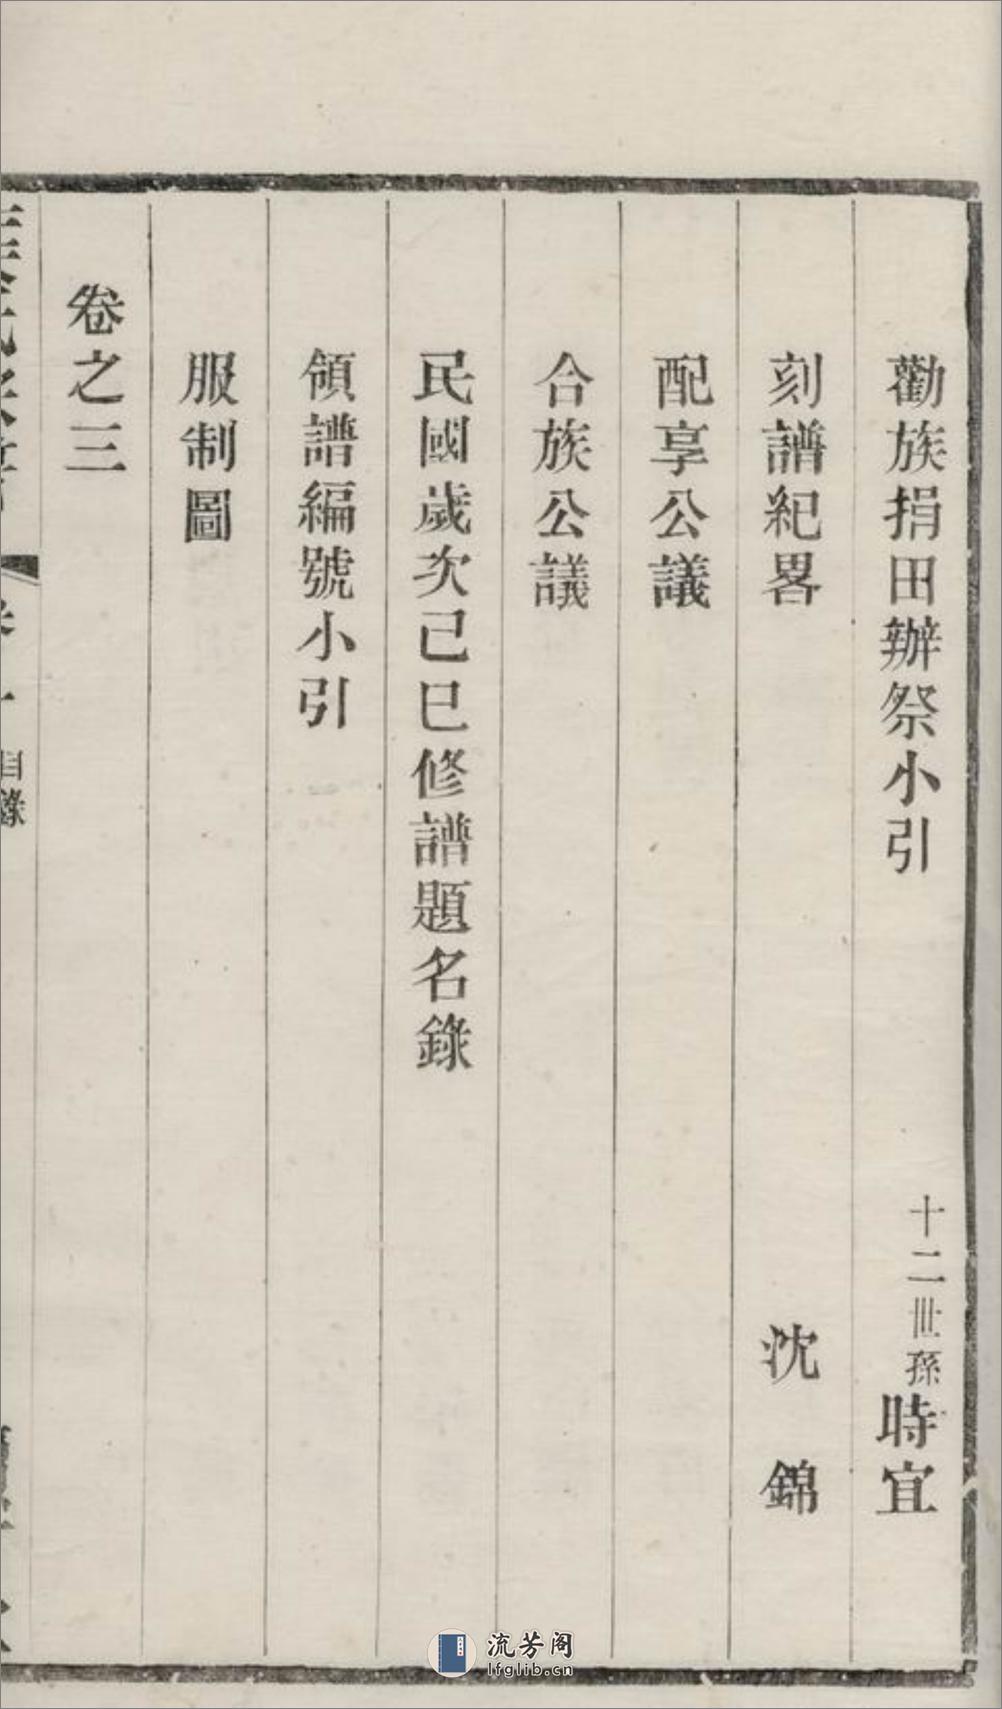 勸族捐田辦祭小引 十二世孫時宜
刻譜紀畧 沈錦
配享公議
合族公議
民國歲次己巳修譜題名錄
領譜編號小引
服制圖
卷之三
目錄
流芳阁
lfglib.cn